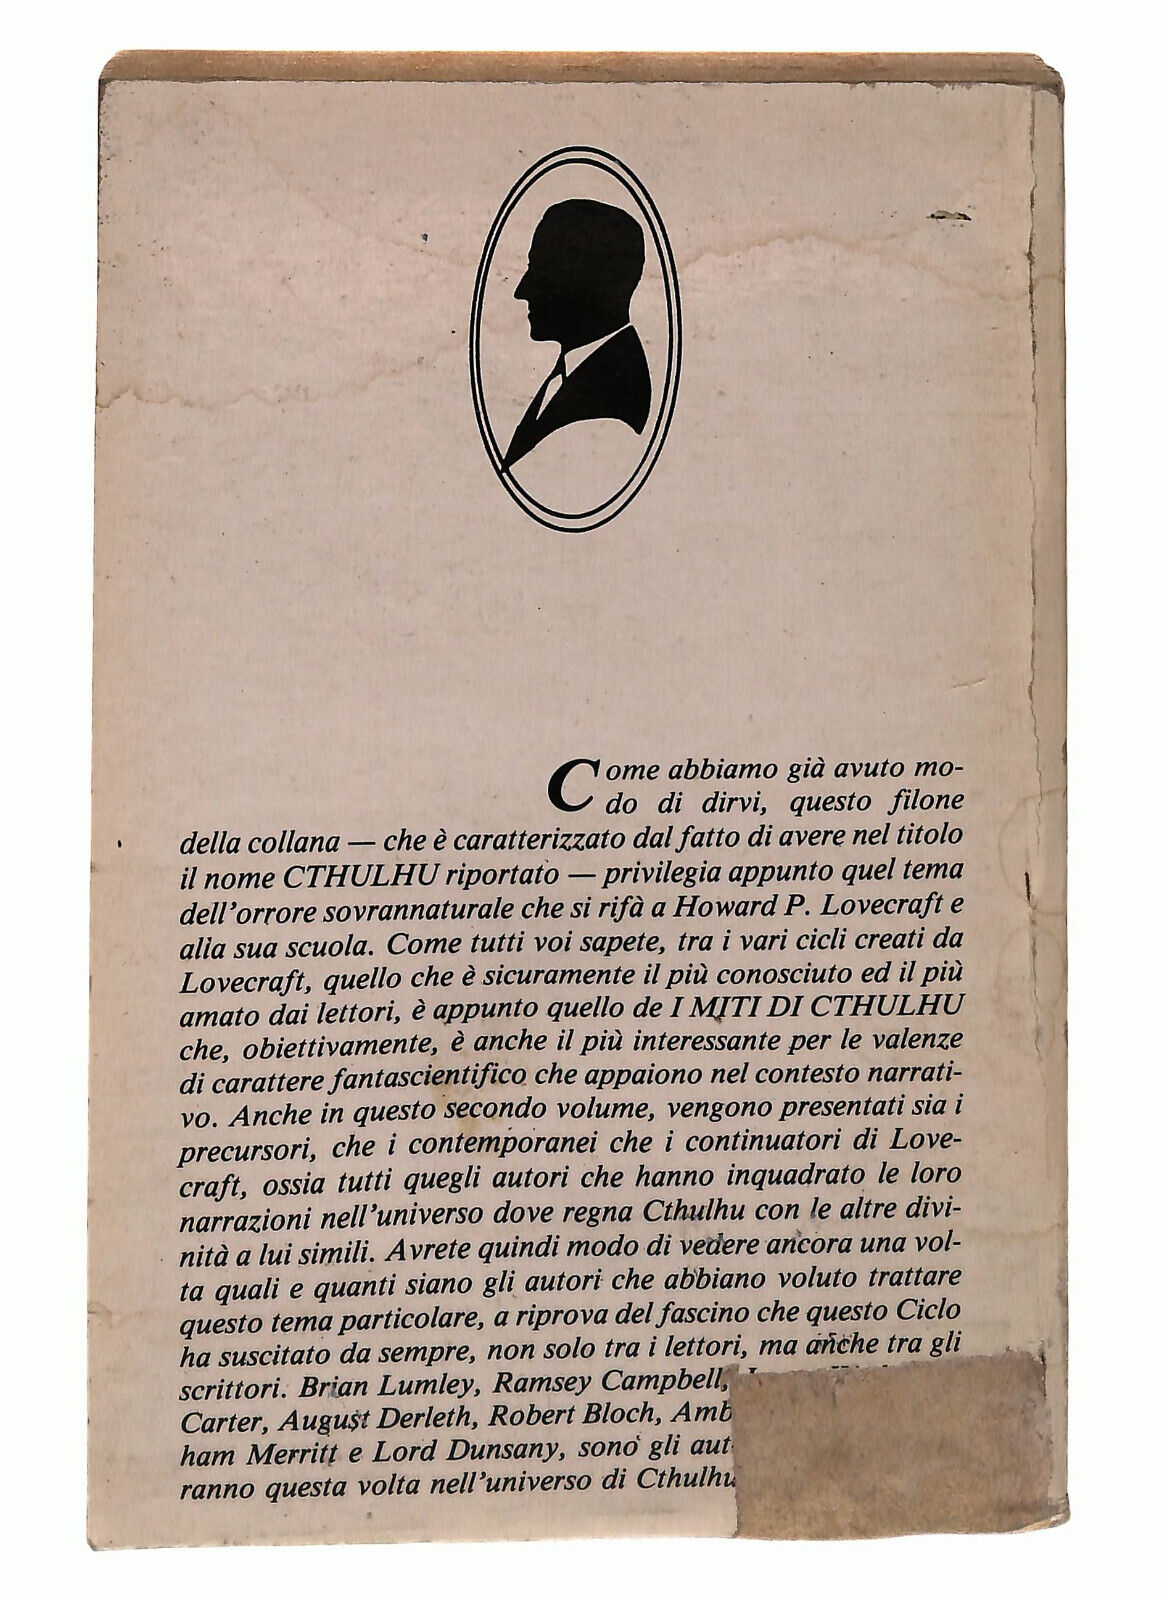 Come abbiamo già avuto mo-
do di dirvi, questo filone
della collana — che è caratterizzato dal fatto di avere nel titolo
il nome CTHULHU riportato — privilegia appunto quel tema
dell'orrore sovrannaturale che si rifà a Howard P. Lovecraft e
alla sua scuola. Come tutti voi sapete, tra i vari cicli creati da
Lovecraft, quello che è sicuramente il più conosciuto ed il più
amato dai lettori, è appunto quello de I MITI DI CTHULHU
che, obiettivamente, è anche il più interessante per le valenze
di carattere fantascientifico che appaiono nel contesto narrati-
vo. Anche in questo secondo volume, vengono presentati sia i
precursori, che i contemporanei che i continuatori di Love-
craft, ossia tutti quegli autori che hanno inquadrato le loro
narrazioni nell'universo dove regna Cthulhu con le altre divi-
nità a lui simili. Avrete quindi modo di vedere ancora una vol-
ta quali e quanti siano gli autori che abbiano voluto trattare
questo tema particolare, a riprova del fascino che questo Ciclo
ha suscitato da sempre, non solo tra i lettori, ma anche tra gli
scrittori. Brian Lumley, Ramsey Campbell,
Carter, August Derleth, Robert Bloch, Amb
ham Merritt e Lord Dunsany, sono gli aut
ranno questa volta nell'universo di Cthulhu